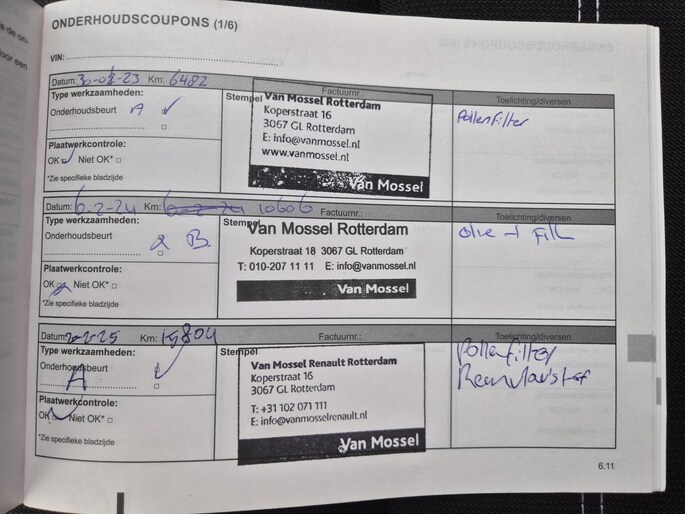 ONDERHOUDSCOUPONS (1/6)
VIN:
Datum: 30-01-23 Km: 6482 Factuurnr.: Toelichting/diversen
Type werkzaamheden: Stempel
Onderhoudsbeurt A
Plaatwerkcontrole:
OK Niet OK*
*Zie specifieke bladzijde
Van Mossel Rotterdam
Koperstraat 16
3067 GL Rotterdam
E: info@vanmossel.nl
www.vanmossel.nl
Van Mossel
Pollenfilter
Datum: 6-2-24 Km: 10606 Factuurnr.: Toelichting/diversen
Type werkzaamheden: Stempel
Onderhoudsbeurt
B
Plaatwerkcontrole:
OK Niet OK*
*Zie specifieke bladzijde
Van Mossel Rotterdam
Koperstraat 18 3067 GL Rotterdam
T: 010-207 11 11 E: info@vanmossel.nl
Van Mossel
Olie + Filt
Datum: Km: 15804 Factuurnr.: Toelichting/diversen
Type werkzaamheden: Stempel
Onderhoudsbeurt
A
Plaatwerkcontrole:
OK Niet OK*
*Zie specifieke bladzijde
Van Mossel Renault Rotterdam
Koperstraat 16
3067 GL Rotterdam
T: +31 102 071 111
E: info@vanmosselrenault.nl
Van Mossel
Pollenfilter
Remvloeistof
6.11